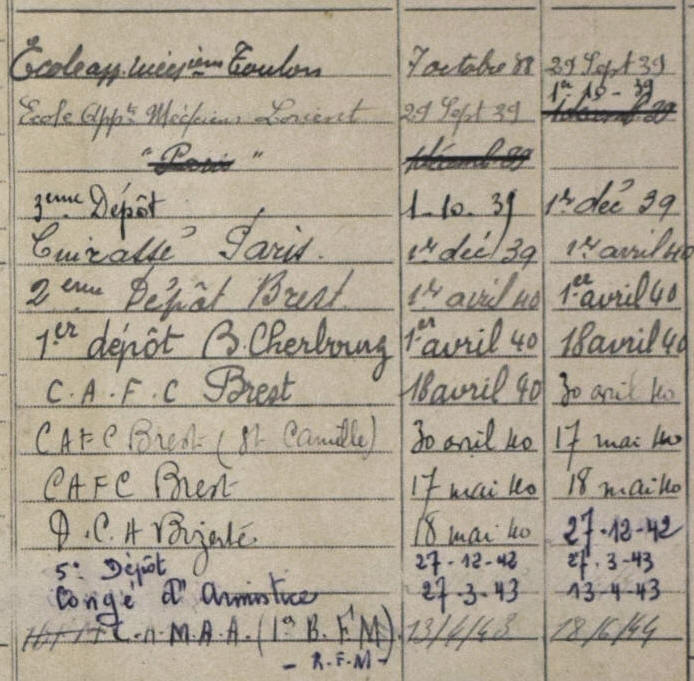 Ecole app. Toulon 7 octobre 38 29 Sept 39
1er 10 - 39
Ecole Appts Mécaniciens Lorient 29 Sept 39
" Paris "
3eme Dépôt 1-10. 39 1er déc 39
Cuirassé Paris. 1er déc 39 1er avril 40
2eme Dépôt Brest 1er avril 40 1er avril 40
1er dépôt B. Cherbourg 1er avril 40 18 avril 40
C.A.F.C Brest 18 avril 40 30 avril 40
CAFC Brest (St Camille) 30 avril 40 17 mai 40
CAFC Brest 17 mai 40 18 mai 40
D.C.A Bizerte 18 mai 40 27-12-42
5e Dépôt 27-12-42 27.3-43
Congé d'Armistice 27-3-43 13-4-43
M.A.A. (1er B.F.M). 13/4/43 18/6/44
- R.F.M -